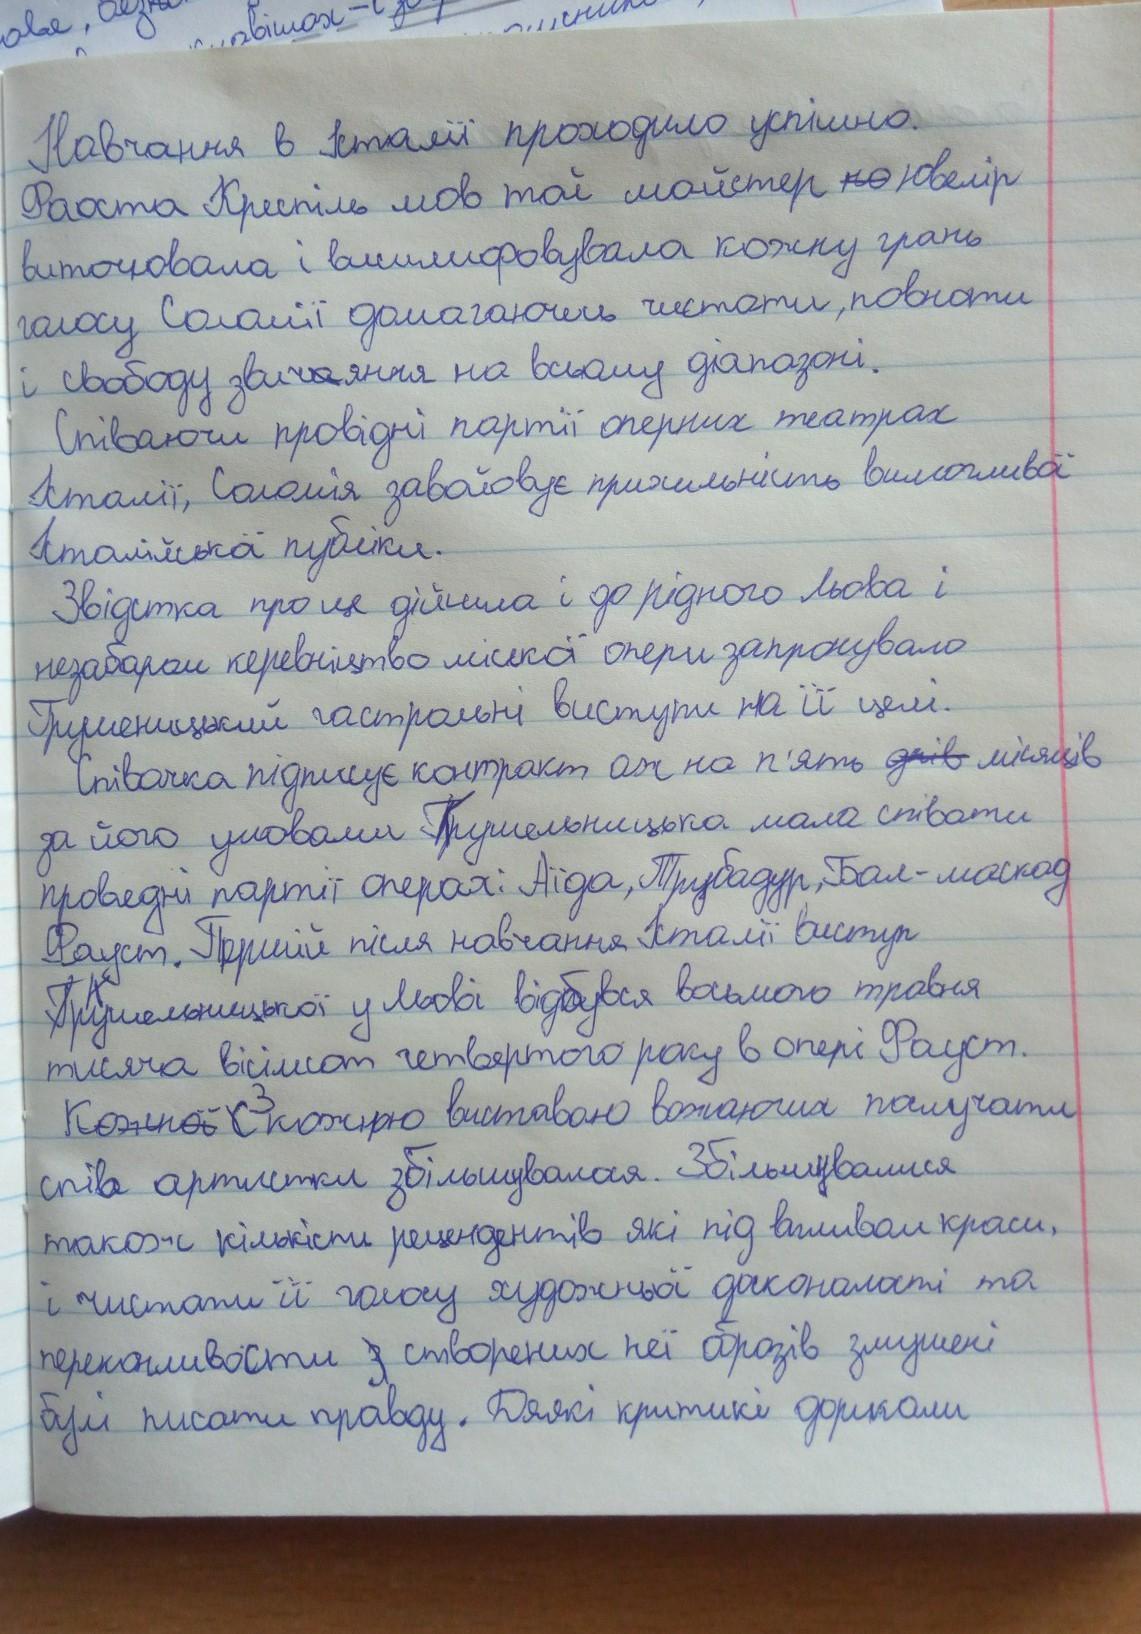 Навчання в Італії проходило успішно.
Фаоста Креспіль мов той майстер ювелір
виточювала і вишліфовувала кожну грань
голосу Соломії домагаючись чистоти, повноти
і свободу звичаяння на всьому діапазоні.
Співаючи провідні партії оперних театрах
Італії, Соломія завойовує прихильність вимогливої
Італійської публіки.
Звідстка про це дійшла і до рідного Львова і
незабаром керевніцтво міської опери запронувало
Грушеницький гастрольні виступи на її цені.
Співачка підписує контракт аж на п'ять днів місяців
за його умовами Крушельницька мала співати
проведні партії операх: Аїда, Трубадур, Бал-маскад
Фауст. Перший після навчання Італії виступ
Крушельницької у Львові відбувся восьмого травня
тисяча вісімсот четвертого року в опері Фауст.
Кожної З кожною виставою бажаючих палучати
спів артистки збільшувалося. Збільшувалися
також кількісти рецендентів які під впливом краси,
і чистоти її голосу художньої досконалості та
переконливости з створених неї образів змушені
булі писати правду. Деякі критикі дорікали